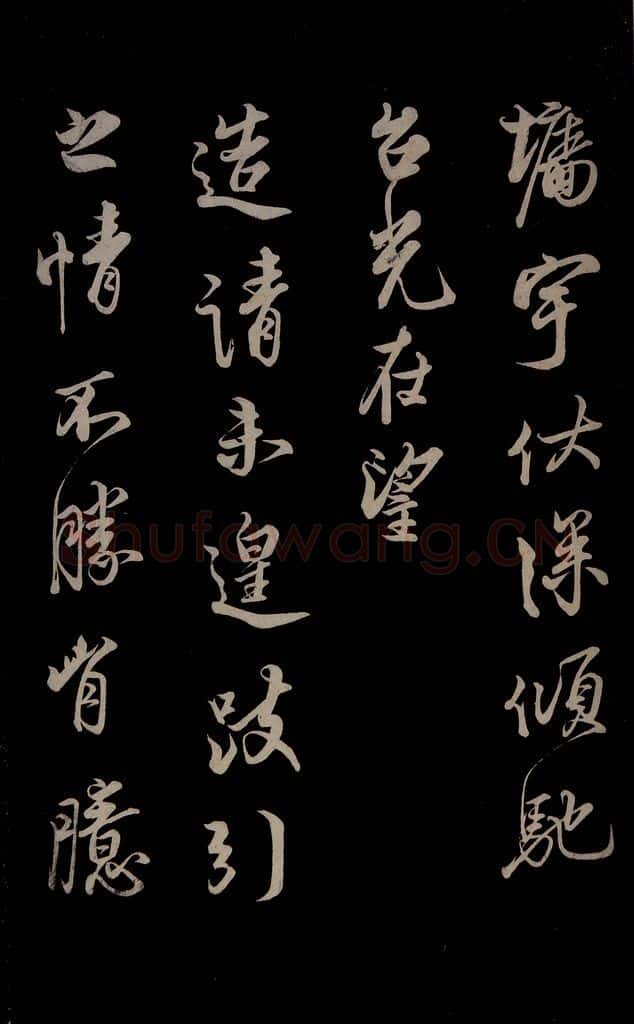 墉宇伏深傾馳
台光在望
造請未遑跂引
之情不勝胷臆
shufawang.CN